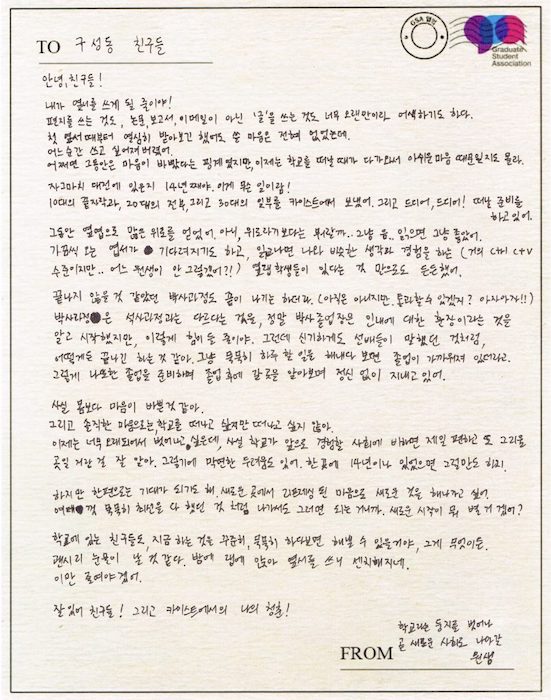 TO 구성동 친구들
GSA 엽서
Graduate
Student
Association
안녕, 친구들!
내가 엽서를 쓰게 될 줄이야!
편지를 쓰는 것도, 논문, 보고서, 이메일이 아닌 '글'을 쓰는 것도 너무 오랜만이라 어색하기도 하다.
첫 엽서 때부터 열심히 받아보긴 했어도 쓸 마음은 전혀 없었는데.
어느순간 쓰고 싶어져버렸어.
어쩌면 그동안은 마음이 바빴다는 핑계였지만, 이제는 학교를 떠날 때가 다가와서 아쉬운 마음 때문일지도 몰라.
자그마치 대전에 있은지 14년째야. 이게 무슨 일이람!
10대의 끝자락과, 20대의 전부, 그리고 30대의 일부를 카이스트에서 보냈어. 그리고 드디어, 드디어! 떠날 준비를
하고 있어.
그동안 엽서로 많은 위로를 얻었어. 아니, 위로라기보다는 뭐랄까.. 그냥 음. 읽으면 그냥 좋았어.
가끔씩 오는 엽서가 기다려지기도 하고, 읽고나면 나와 비슷한 생각과 경험을 하는 (거의 ctrl c+v
수준이지만.. 어느 원생이 안 그렇겠어?!) 학생들이 있다는 것 만으로도 든든했어.
끝나지 않을 것 같았던 박사과정도 끝이 나기는 하더라. (아직은 아니지만. 통과할 수 있겠지? 아자아자!!)
박사과정은 석사과정과는 다르다는 것을, 정말 박사졸업장은 인내에 대한 훈장이라는 것을
알고 시작했지만, 이렇게 힘이 들 줄이야. 그런데 신기하게도 선배들이 말했던 것처럼,
어떻게든 끝나긴 하는 것 같아. 그냥 묵묵히 하루 할 일을 해내다 보면 졸업이 가까워져 있더라고.
그렇게 나또한 졸업을 준비하며 졸업 후에 갈 곳을 알아보며 정신 없이 지내고 있어.
사실 몸보다 마음이 바쁜 것 같아.
그리고 솔직한 마음으로는, 학교를 떠나고 싶지만 떠나고 싶지 않아.
이제는 너무 오래되어서 벗어나고 싶은데, 사실 학교가 앞으로 경험할 사회에 비하면 제일 편하고 또 그리울
곳일 거란 걸 잘 알아. 그렇기에 막연한 두려움도 있어. 한 곳에 14년이나 있었으면 그럴만도 하지.
하지만 한편으로는 기대가 되기도 해. 새로운 곳에서 리프레싱 된 마음으로 새로운 것을 해나가고 싶어.
여태껏 묵묵히 최선을 다 했던 것 처럼 나가서도 그러면 되는 거니까. 새로운 시작이 뭐, 별 거 겠어?
학교에 있는 친구들도, 지금 하는 것을 꾸준히, 묵묵히 하다보면, 해낼 수 있을거야, 그게 무엇이든.
괜시리 눈물이 날 것 같다. 밤에 랩에 앉아 엽서를 쓰니 센치해지네.
이만 줄여야겠어.
잘 있어 친구들! 그리고 카이스트에서의 나의 청춘!
학교라는 둥지를 벗어나
곧 새로운 사회로 나아갈
원생
FROM